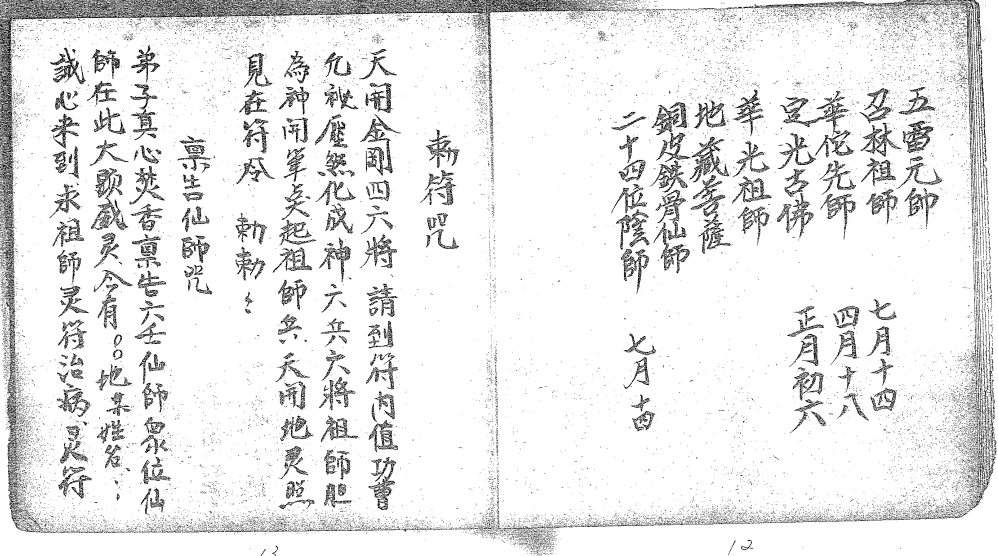 五雷元帥
召林祖師 七月十四
華佗先師 四月十八
定光古佛 正月初六
華光祖師
地藏菩薩
銅皮鉄骨仙師
二十四位蔭師 七月十四
12
勅符咒
天開金剛四六將 請到符内值功曹
允被壓煞化成神 六兵六將祖師胆
為神開筆点起祖師兵 天開地灵照
見在符令 勅勅〻
禀告仙師咒
弟子真心焚香禀告六壬仙師眾位仙
師在此大顕威灵今有〇〇地某姓名〻
誠心来到求祖師灵符治病灵符
13